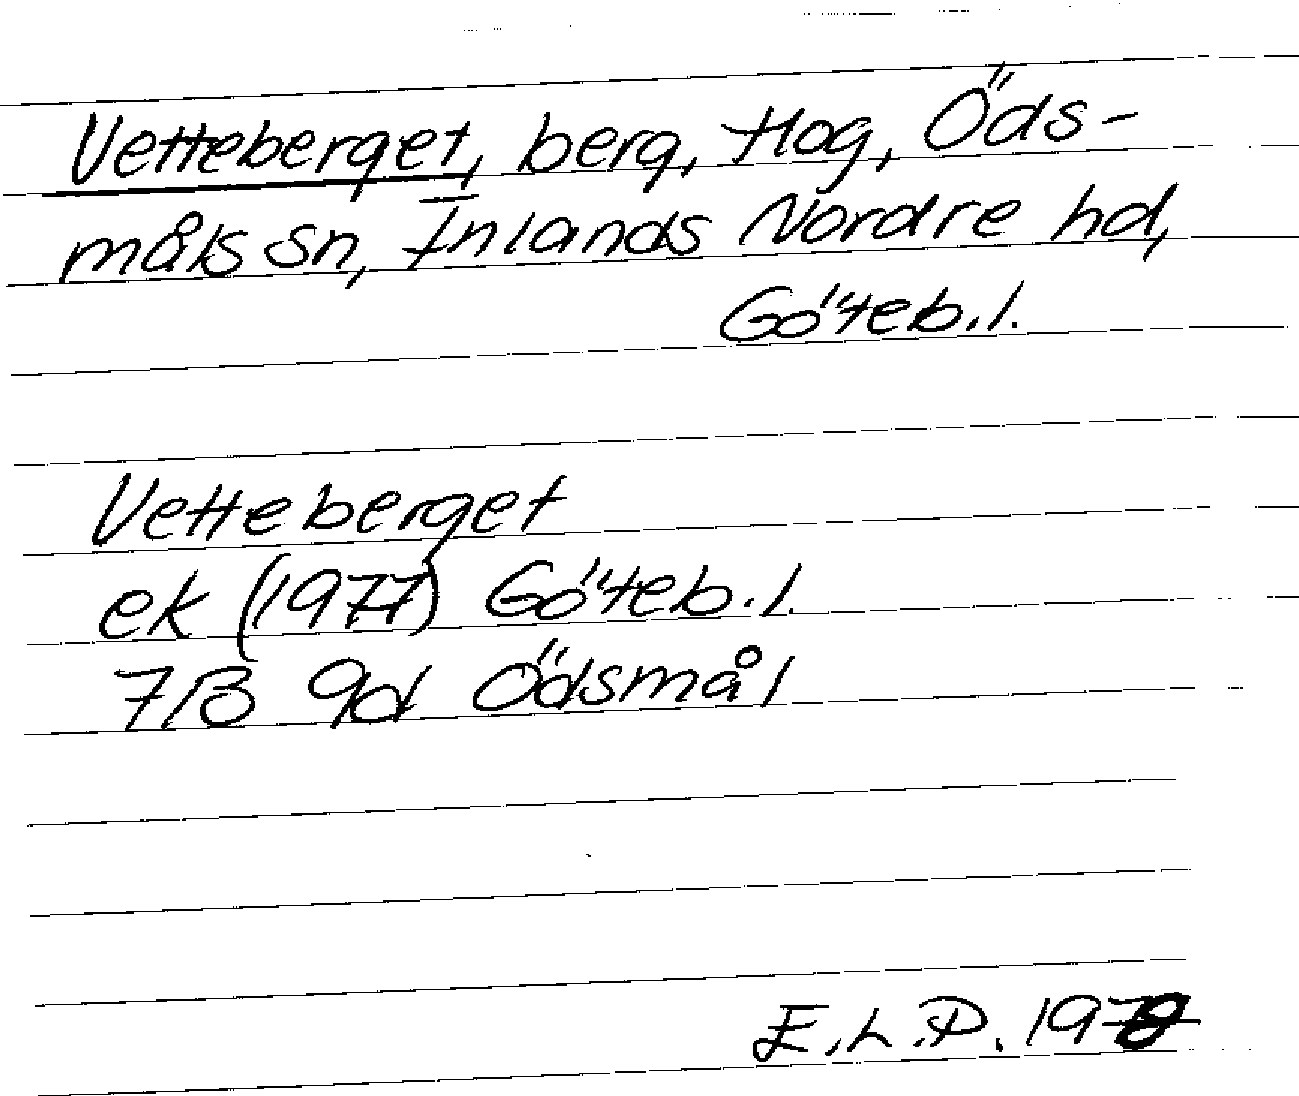 Vetteberget, berg, Hog, Öds-
måls sn, Inlands Nordre hd,
Göteb.l.
Vetteberget
ek (1977) Göteb.l.
7B 9d Ödsmål
E.L.P.